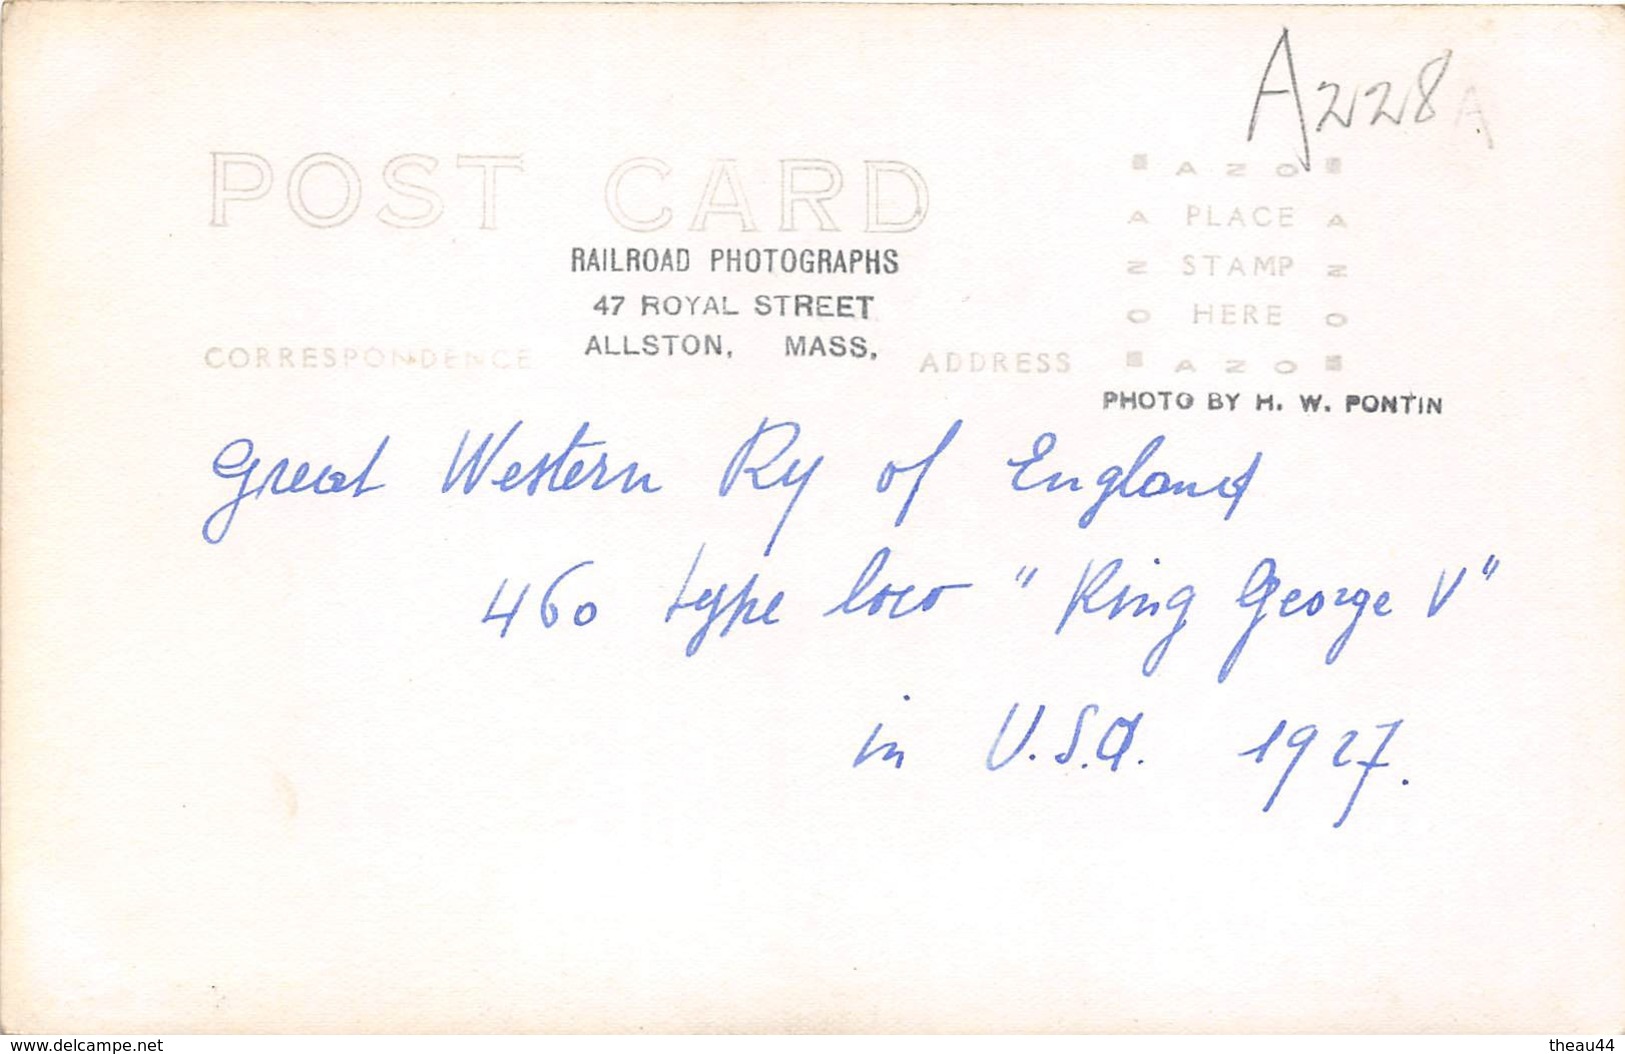 A228 A
POST CARD
RAILROAD PHOTOGRAPHS
47 ROYAL STREET
ALLSTON, MASS.
CORRESPONDENCE
ADDRESS
AZO
A PLACE A
Z STAMP Z
O HERE O
AZO
PHOTO BY H. W. PONTIN
Great Western Ry of England
460 type loco "King George V"
in U.S.A. 1927.
www.delcampe.net
theau44